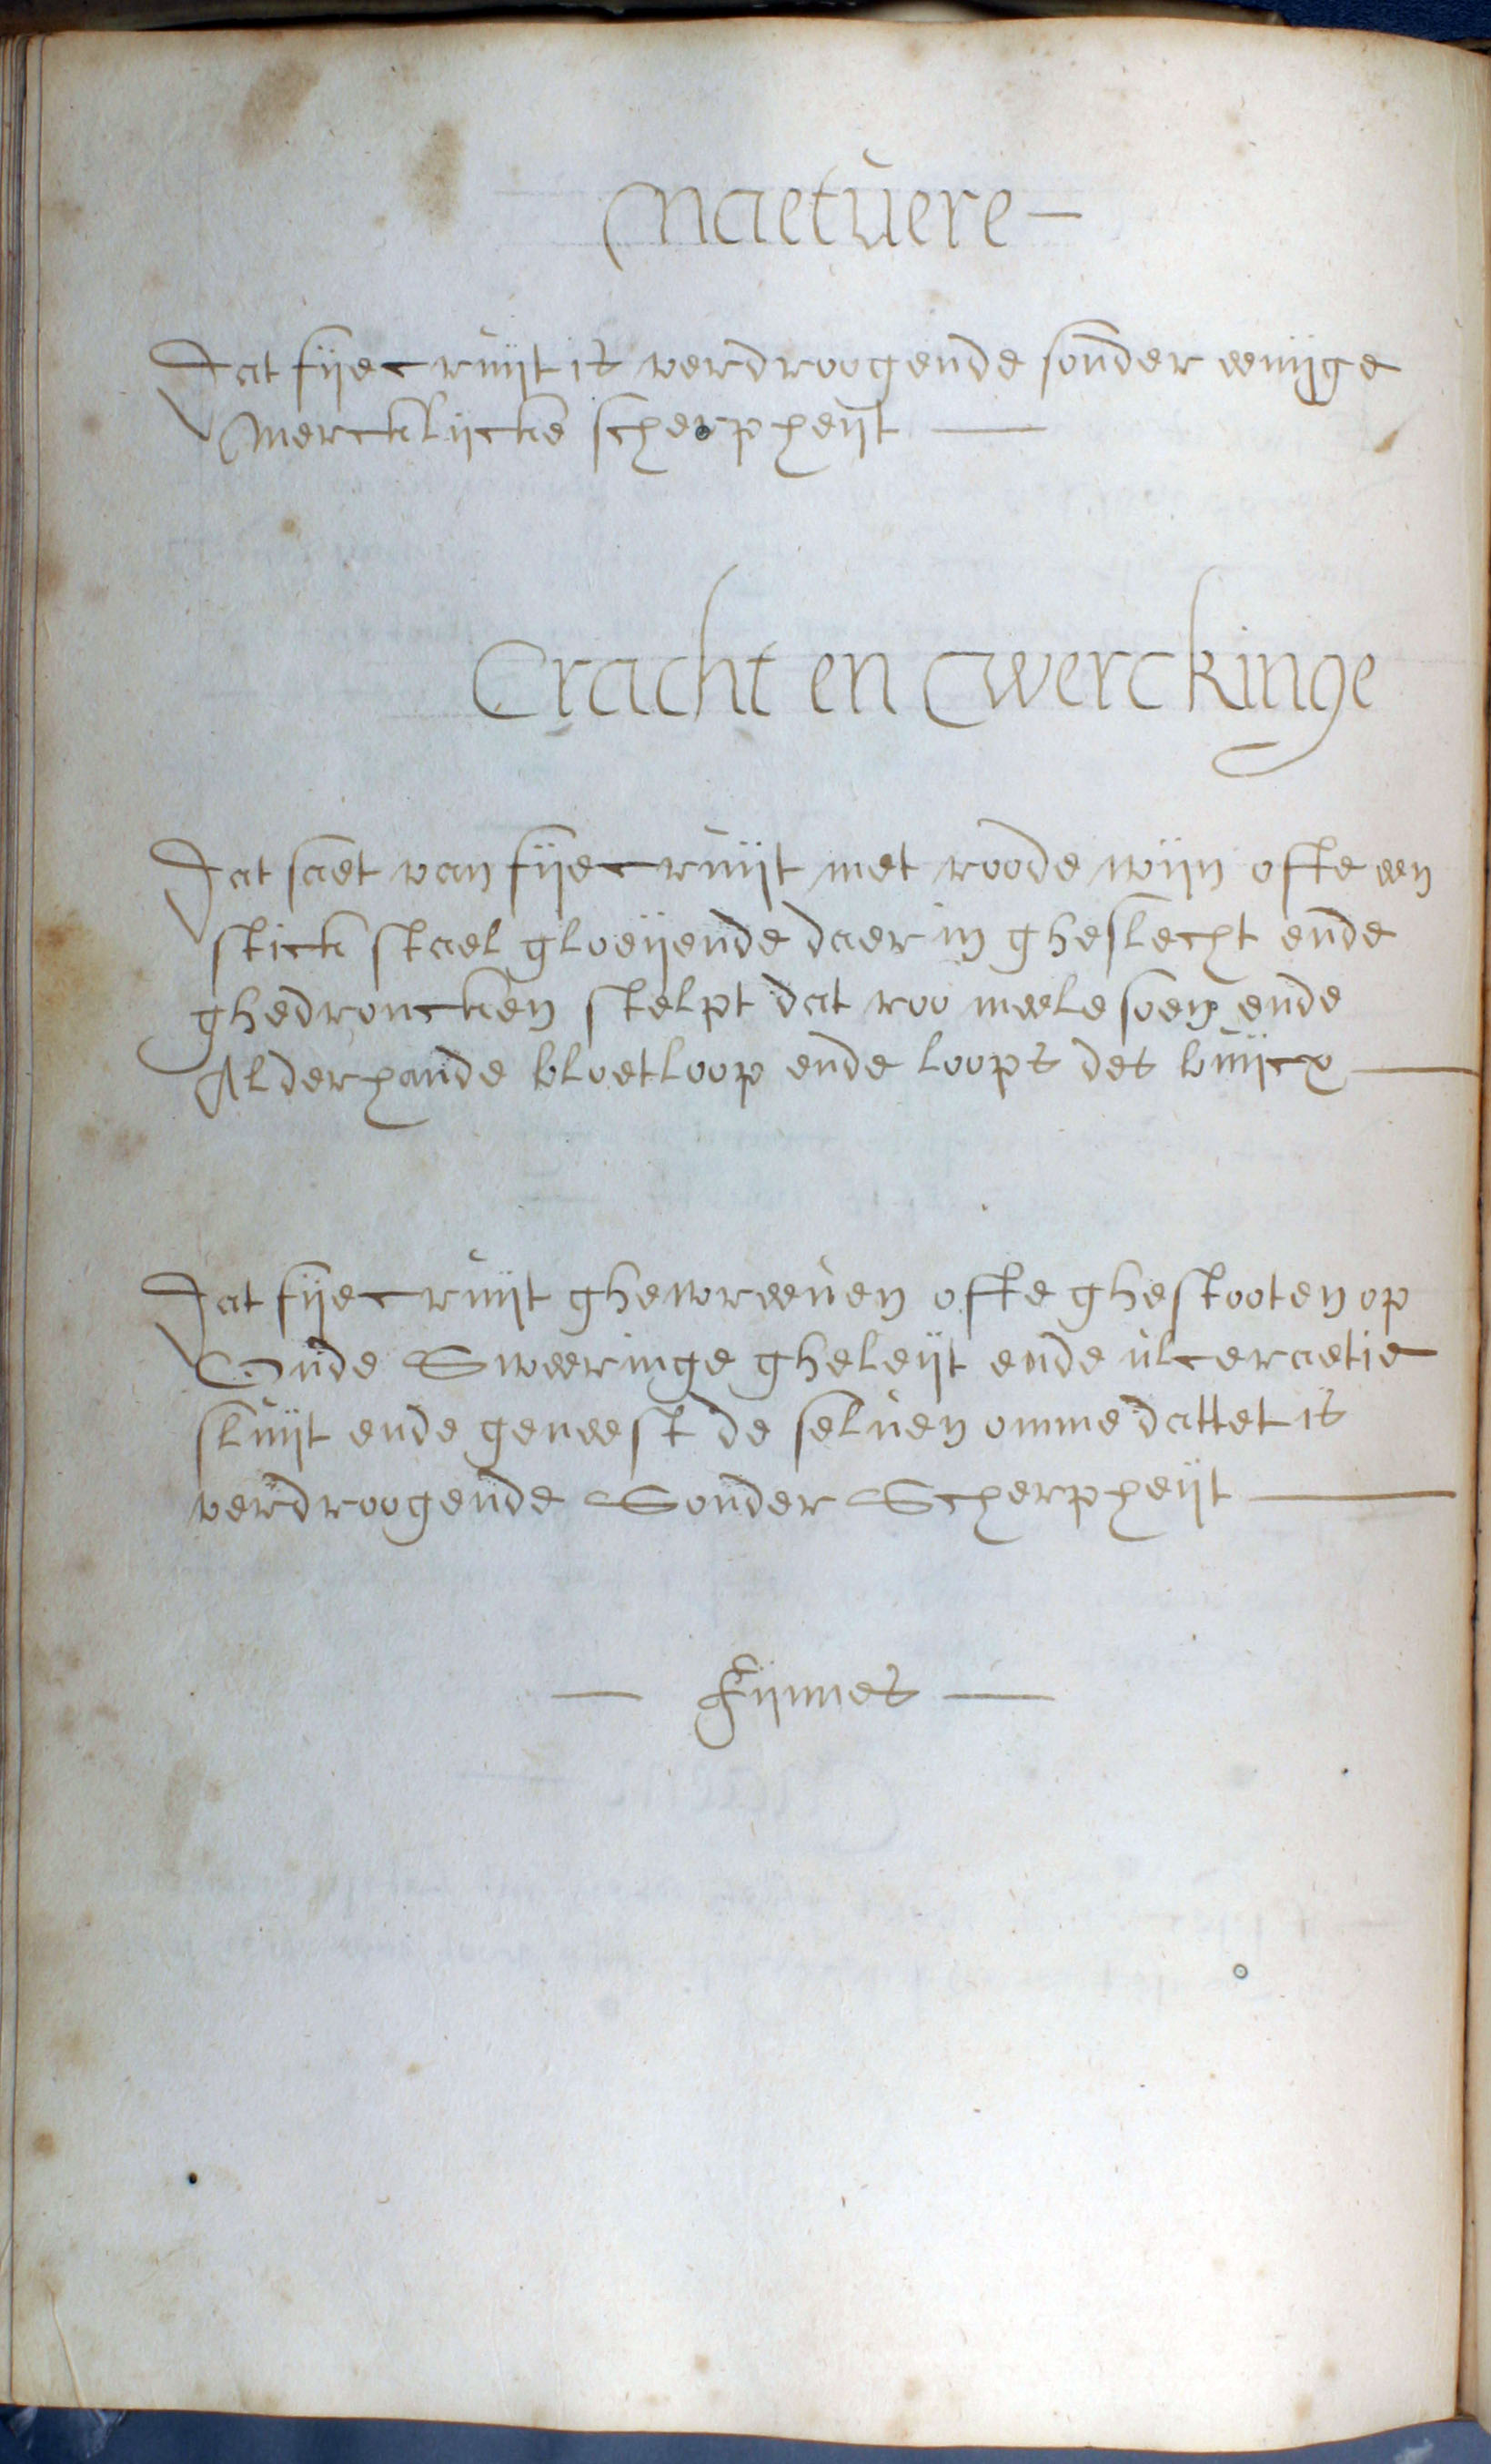 Naetuere —
Dat fijecruijt is verdroogende sonder eenijge
Mercklijcke scherpheijt —
Cracht en Werckinge
Dat saet van fijecruijt met roode wijn ofte een
stick stael gloeijende daer in gheslecht ende
ghedroncken stelpt dat roo meelesoen ende
Alderhande bloetloop ende loops des buijcx —
Dat fijecruijt ghewreeuen ofte ghestooten op
Oude Sweeringe gheleijt ende ulceraetie
sluijt ende geneest de seluen omme dattet is
verdroogende Sonder Scherpheijt —
— Fijnnes —